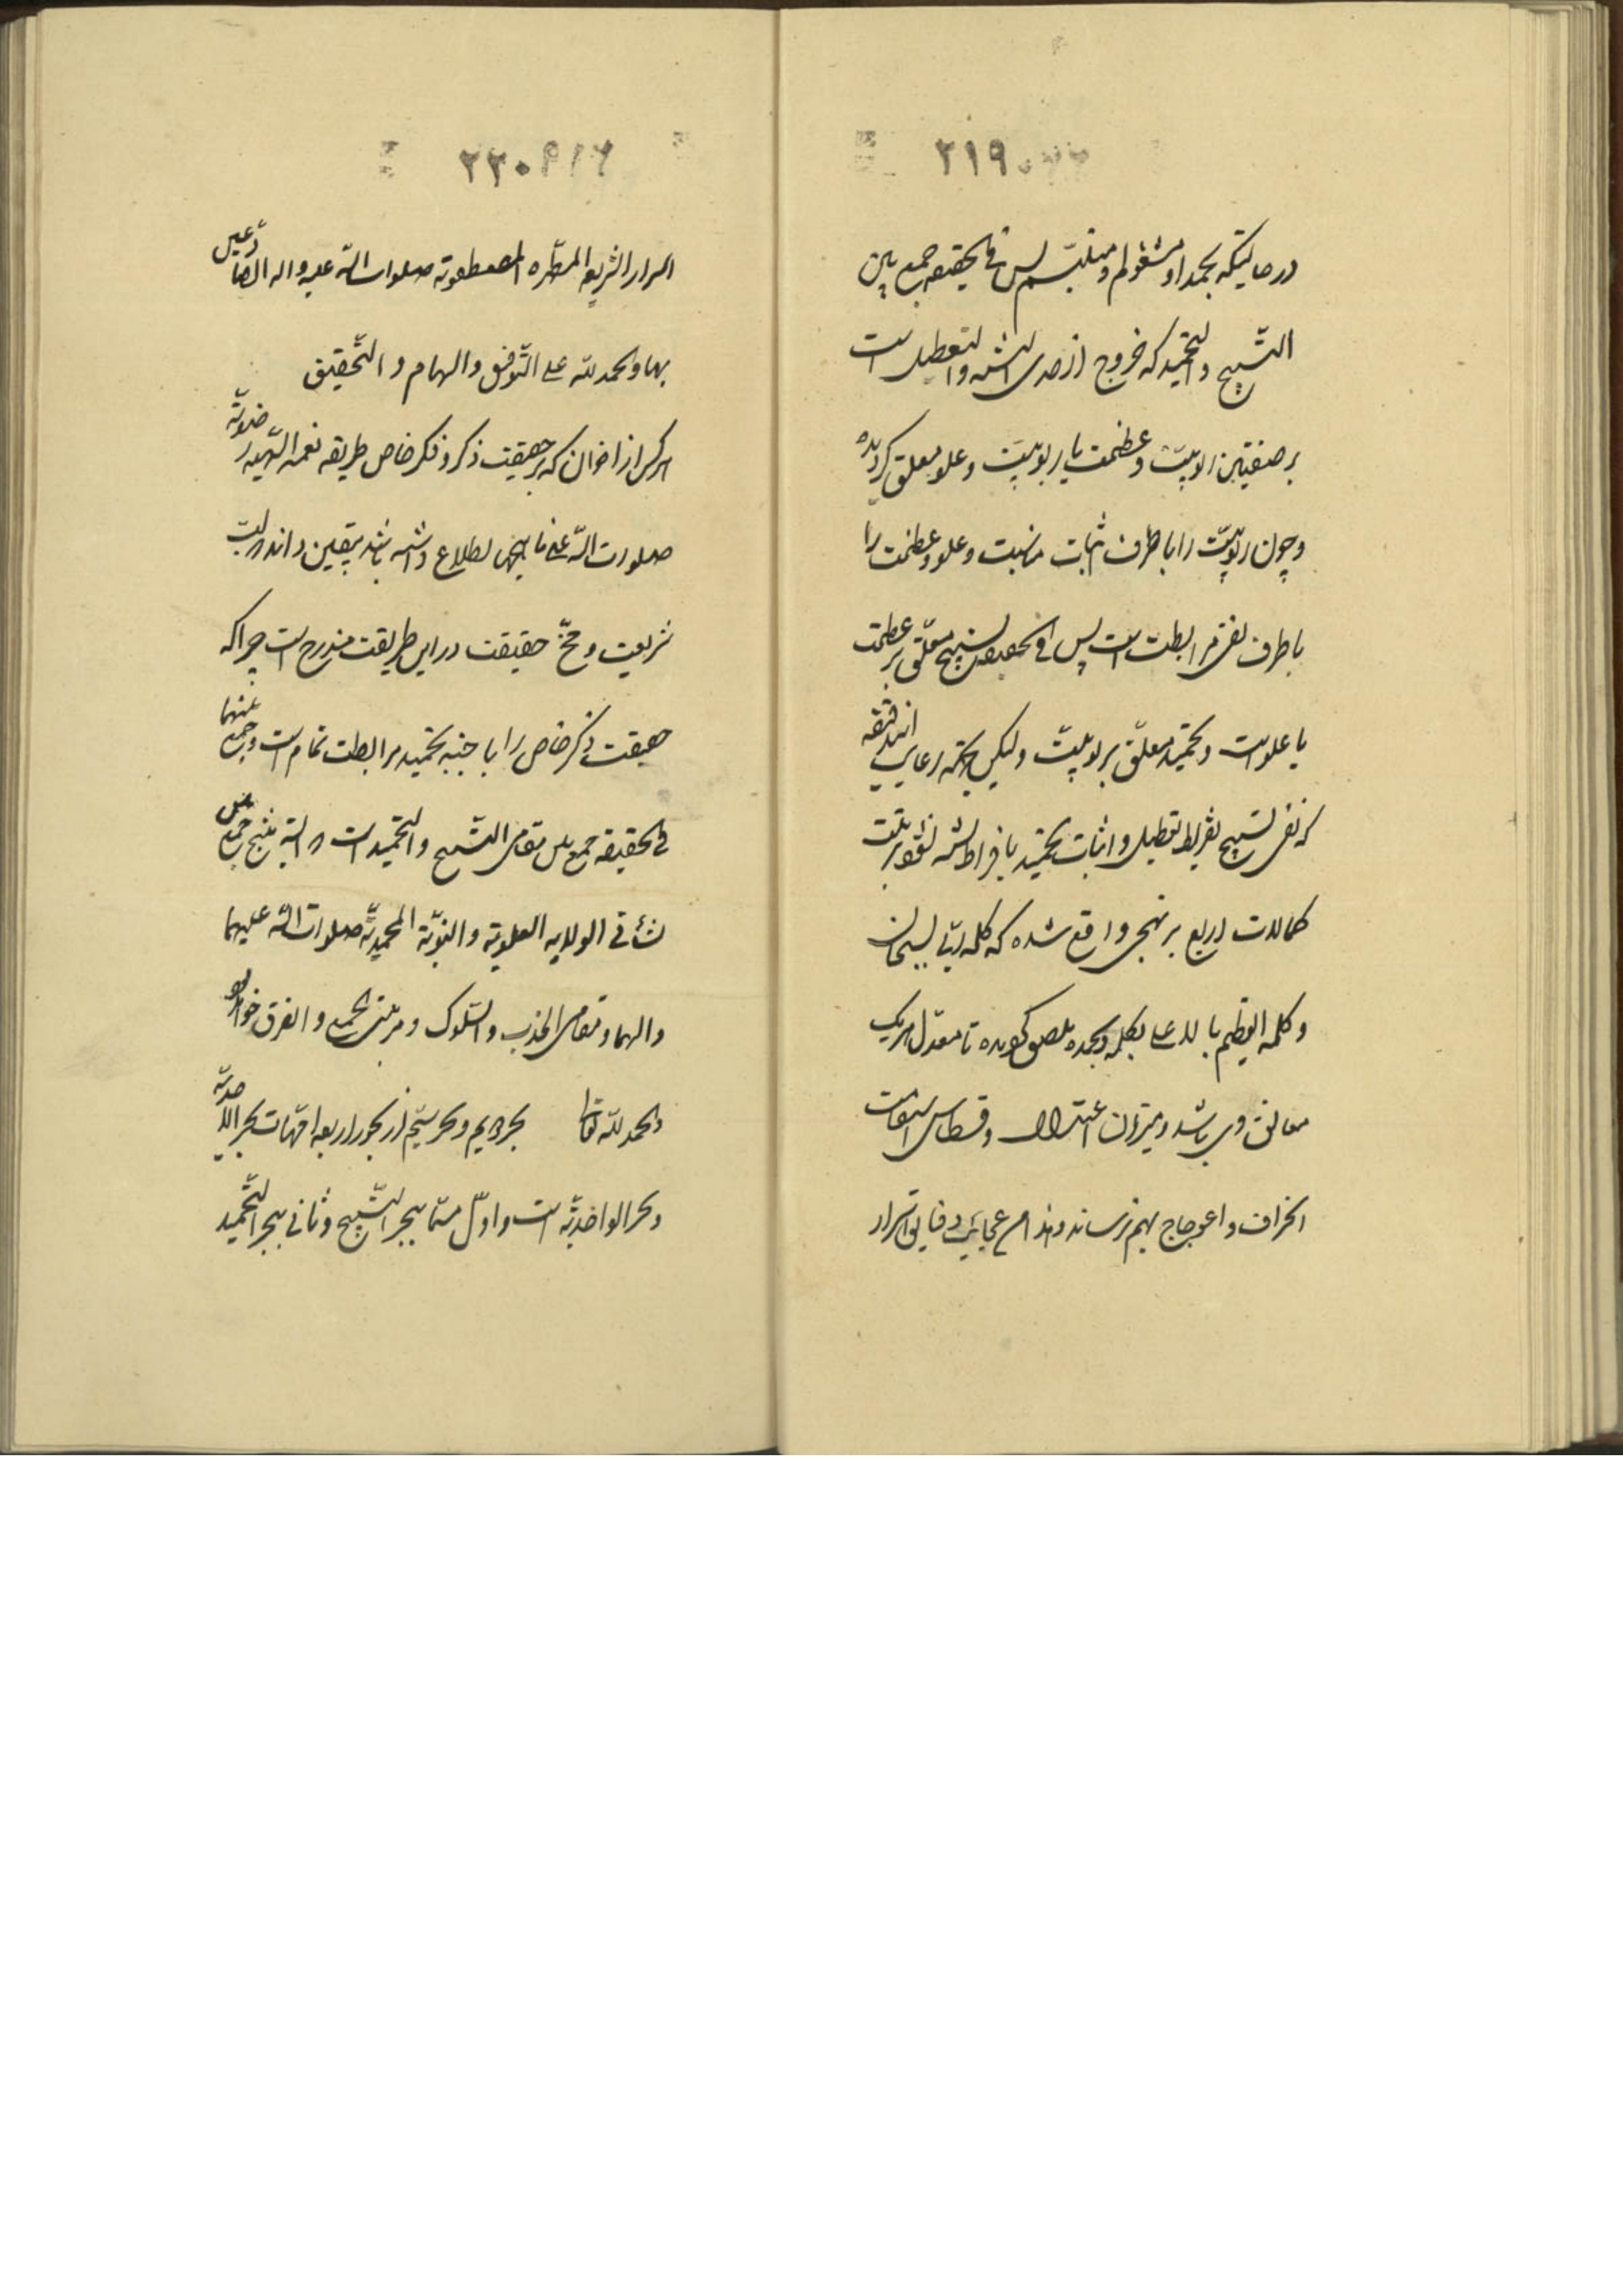 ۲۱۹
در حالیکه بحمد او مشغولم و متلبّسم پس فی الحقیقه جمع بین
التّسبیح و التحمید که خروج از حدی التشبیه و التعطیل است
بر صفتین الوهیّت و عظمت یا ربوبیّت و علو معلق کردیده
و چون ربوبیّت را با طرف اثبات مناسبت و علو و عظمت را
با طرف نفی مرابطت است پس فی الحقیقه تسبیح معلّق بر عظمت
یا علو است و تحمید معلّق بر ربوبیّت ولیکن بجهة رعایت
که نفی تسبیح بتفریط تعطیل و اثبات تحمید بافراط تشبیه
کمالات اربع بر نهجی واقع شده که کلمه ربّی بسبحان
و کلمه العظیم یا الاعلی بکلمه و بحمده ملصق کردیده تا معدّل هریک
معانق وی باشد و میزان اعتدال و قسطاس استقامت
انحراف و اعوجاج بهم نرساند و هذا من عجایب دقایق اسرار
۲۲۰
اسرار الشریعه المطهّره المصطفویّه صلوات الله علیه و اله الصادعین
بها و الحمد لله علی التّوفیق و الهام و التّحقیق
هر کس از اخوان که بر حقیقت ذکر و فکر خاص طریقه نعمة اللّهیه رضویّه
صلوات الله علی اطلاع داشته باشد بیقین داند که لبّ
شریعت و مخّ حقیقت در این طریقت مندرج است چرا که
حقیقت ذکر خاص را با جنبه تحمید مرابطت تمام است و جمع بینهما
فی الحقیقه جمع بین مقامی التّسبیح و التّحمید است و البته منتج جمع بین
نشأتی الولایه العلویّه و النبویّة المحمدیّة صلوات الله علیهما
و الهما و مقامی الجذب و السّلوک و مرتبتی الجمع و الفرق خواهد بود
و الحمد لله تعالی بحر دویم و بحر سیّم از بحور اربعه امّهات بحر الاحدیّه
و بحر الواحدیّه است و اوّل مسمّا ببحر التّسبیح و ثانی ببحر التّحمید